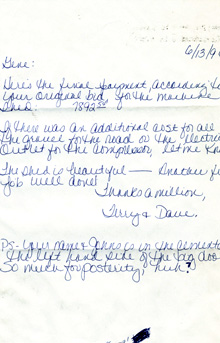 6/13/9
Gene:
Here's the final payment, according to
your original bid, for the machine
shed: 7892
If there was an additional cost for all
the gravel for the road or the electric
outlet for the compressor, let me kn
The shed is beautiful — Another f
job well done!
Thanks a million,
Terry & Dave.
PS- Your name & Ann's is in the cement
The left hand side of the big doo
So much for posterity, huh?